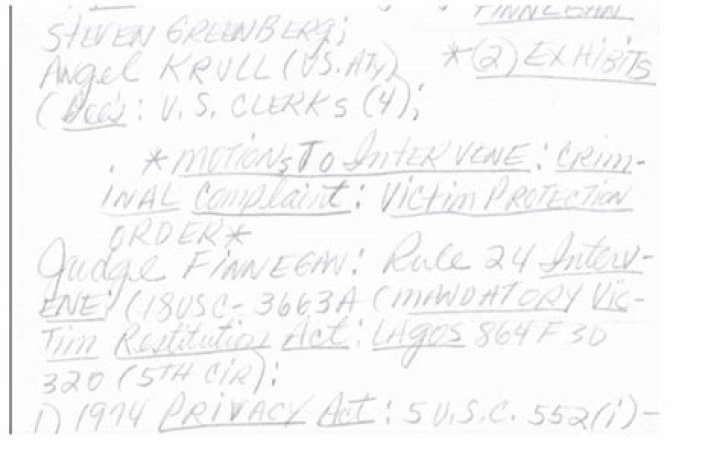 FINNEGAN
STEVEN GREENBERG;
Angel KRULL (US. ATy)
*(2) EXHIBITS
: U.S. CLERKS (4);
. * MOTIONS TO InTERVENE: CRIM-
INAL Complaint: Victim PROTECTION
ORDER*
Judge FINNEGAN: Rule 24 Interv-
ENE: (18USC-3663A (MANDATORY Vic-
Tim Restitution Act: LAGOS 864 F 3D
320 (5TH CIR):
1) 1974 PRIVACY Act: 5 U.S.C. 552(i)-